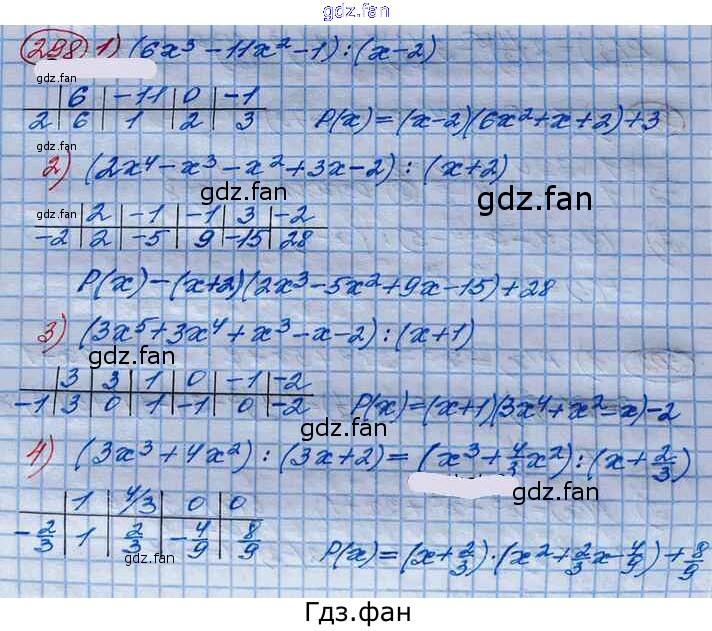 gdz.fan
298 1) (6x³ - 11x² - 1) : (x - 2)
gdz.fan
| 6 | -11 | 0 | -1
2 | 6 | 1 | 2 | 3
P(x) = (x-2)(6x² + x + 2) + 3
gdz.fan
2) (2x⁴ - x³ - x² + 3x - 2) : (x + 2)
gdz.fan
gdz.fan
gdz.fan
| 2 | -1 | -1 | 3 | -2
-2 | 2 | -5 | 9 | -15 | 28
P(x) - (x+2)(2x³ - 5x² + 9x - 15) + 28
3) (3x⁵ + 3x⁴ + x³ - x - 2) : (x + 1)
gdz.fan
gdz.fan
gdz.fan
| 3 | 3 | 1 | 0 | -1 | -2
-1 | 3 | 0 | 1 | -1 | 0 | -2
P(x) = (x+1)(3x⁴ + x² = x) - 2
gdz.fan
4) (3x³ + 4x²) : (3x + 2) = (x³ + 4/3 x²) : (x + 2/3)
gdz.fan
| 1 | 4/3 | 0 | 0
-2/3 | 1 | 2/3 | -4/9 | 8/9
P(x) = (x + 2/3) · (x² + 2/3 x - 4/9) + 8/9
gdz.fan
Гдз.фан